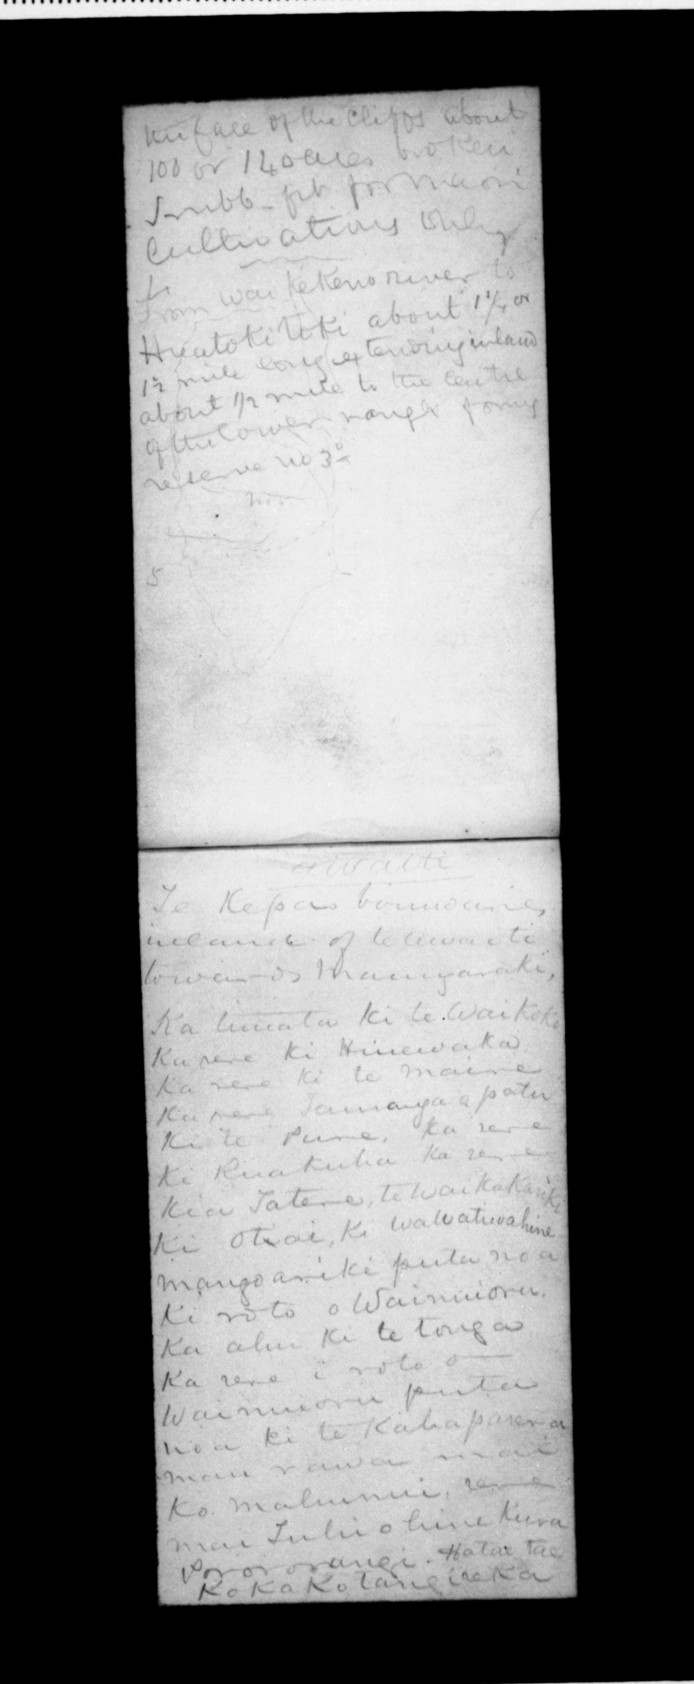 surface of the cliffs about
100 or 140 acres broken
Scrubb - fit for Maori
Cultivations only
4
From Waikekeno river to
Huatokitoki about 1 1/4 or
1 1/2 mile long extending inland
about 1/2 mile to the centre
of the lower ranges forms
reserve no 3
5
awaiti
Te Kepas boundaries
inland of te awaiti
towards Maungaraki,
Ka timata ki te Waikoko
Ka rere ki Hinewaka
Ka rere ki te Maire
Ka rere
ki te Pune. Ka rere
ki Ruakuha ka rere
kia Tatere, te Waikakariki
ki ki
mangoariki puta noa
ki roto o Wainuioru.
Ka ahu ki te tonga
Ka rere i roto o
Wainuioru puta
noa ki te Kahaparera
mau rawa mai
Ko rere
mai Tuhi o hine Kura
Porororangi.